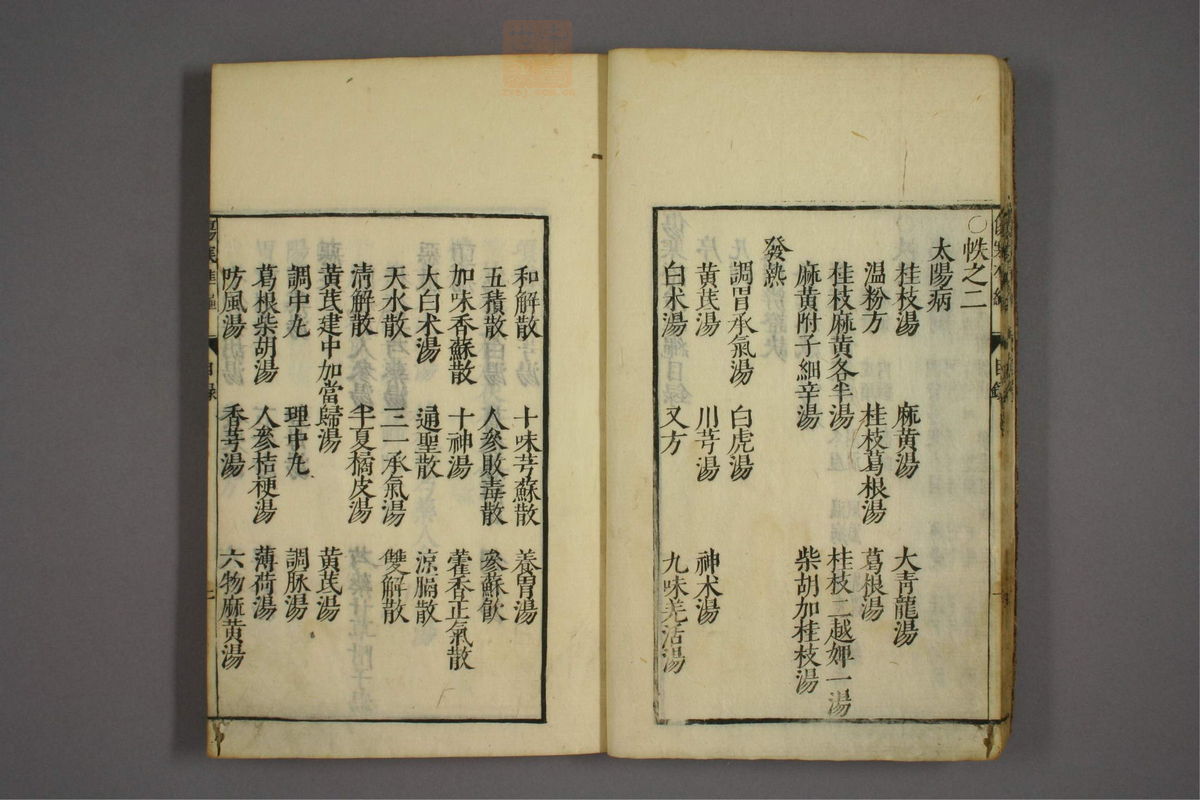 ○帙之二
太陽病
桂枝湯 麻黃湯 大青龍湯
温粉方
桂枝麻黃各半湯 桂枝葛根湯 葛根湯
麻黃附子細辛湯 桂枝二越婢一湯
柴胡加桂枝湯
發熱
調胃承氣湯 白虎湯
黃芪湯 川芎湯 神朮湯
白朮湯 又方 九味羌活湯
和解散 十味芎蘇散 養胃湯
五積散 人參敗毒散 參蘇飲
加味香蘇散 十神湯 藿香正氣散
大白朮湯 通聖散 涼膈散
天水散 三一承氣湯 雙解散
清解散 半夏橘皮湯
黃芪建中加當歸湯 黃芪湯
調中丸 理中丸 調脉湯
葛根柴胡湯 人參桔梗湯 薄荷湯
防風湯 香芎湯 六物麻黃湯
目錄